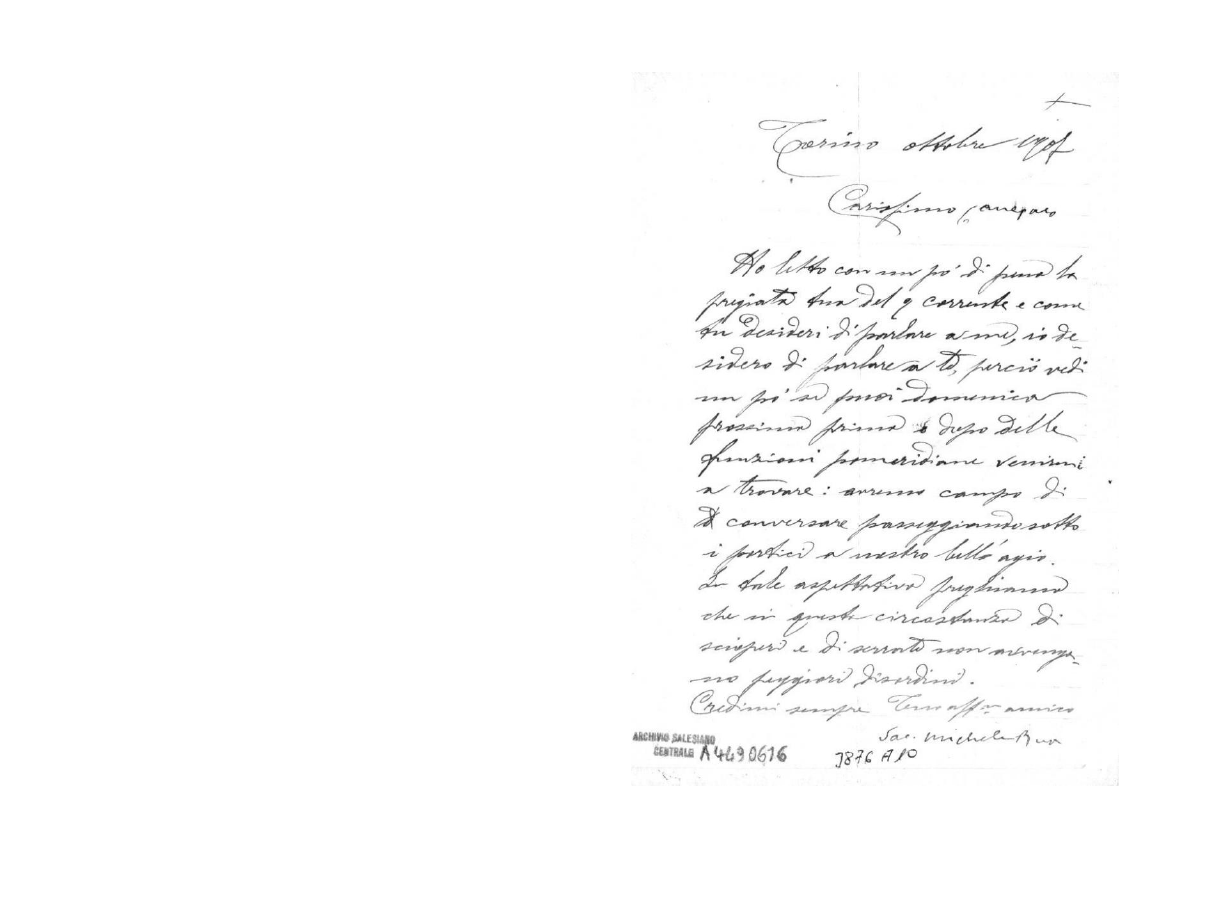 Torino ottobre 190
Carissimo
Ho letto con un pò di pena la
pregiata tua del 9 corrente e come
tu desideri di parlare a me, io de-
sidero di parlare a te, perciò vedi
un pò se puoi domenica
prossima prima o dopo delle
funzioni pomeridiane venirmi
a trovare: avremo campo di
conversare passeggiando sotto
i portici a nostro bell'agio.
In tale aspettativa preghiamo
che in queste circostanze di
scioperi e di serrate non avvenga-
no peggiori disordini.
Credimi sempre Tuo aff.mo amico
Sac. Michele Rua
ARCHIVIO SALESIANO
CENTRALE A4490616
3876 A10